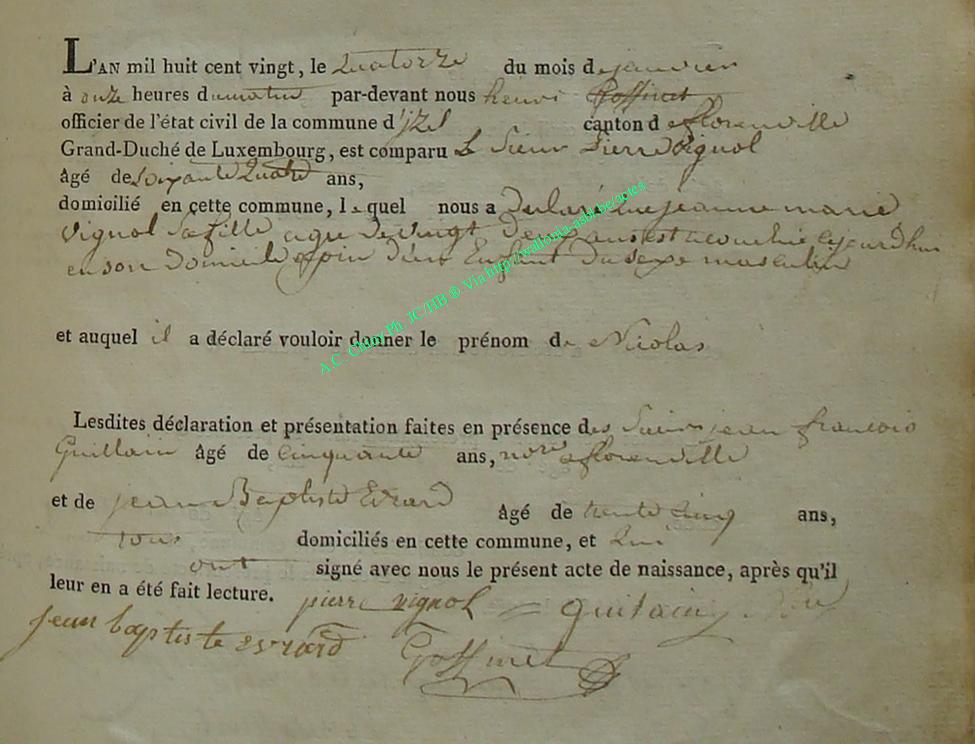 L'AN mil huit cent vingt, le quatorze du mois de janvier
à onze heures du matin par-devant nous henri Goffinet
officier de l'état civil de la commune d'izel canton de florenville
Grand-Duché de Luxembourg, est comparu le Sieur Pierre Vignol
âgé de soixante quatre ans,
domicilié en cette commune, lequel nous a declaré que jeanne marie
vignol sa fille agée de vingt deux ans est accouchée aujourd'hui
en son domicile d'un Enfant du sexe masculin
et auquel il a déclaré vouloir donner le prénom de Nicolas
Lesdites déclaration et présentation faites en présence des Sieurs jean francois
Guillain âgé de cinquante ans, nore a florenville
et de jean Baptiste Evrard âgé de trente cinq ans,
tous domiciliés en cette commune, et qui
ont signé avec nous le présent acte de naissance, après qu'il
leur en a été fait lecture. pierre vignol guilain
jean baptiste evrard Goffinet
A.C. Chiny Ph. JC/HB ® Via http://wallonia-asbl.be/actes